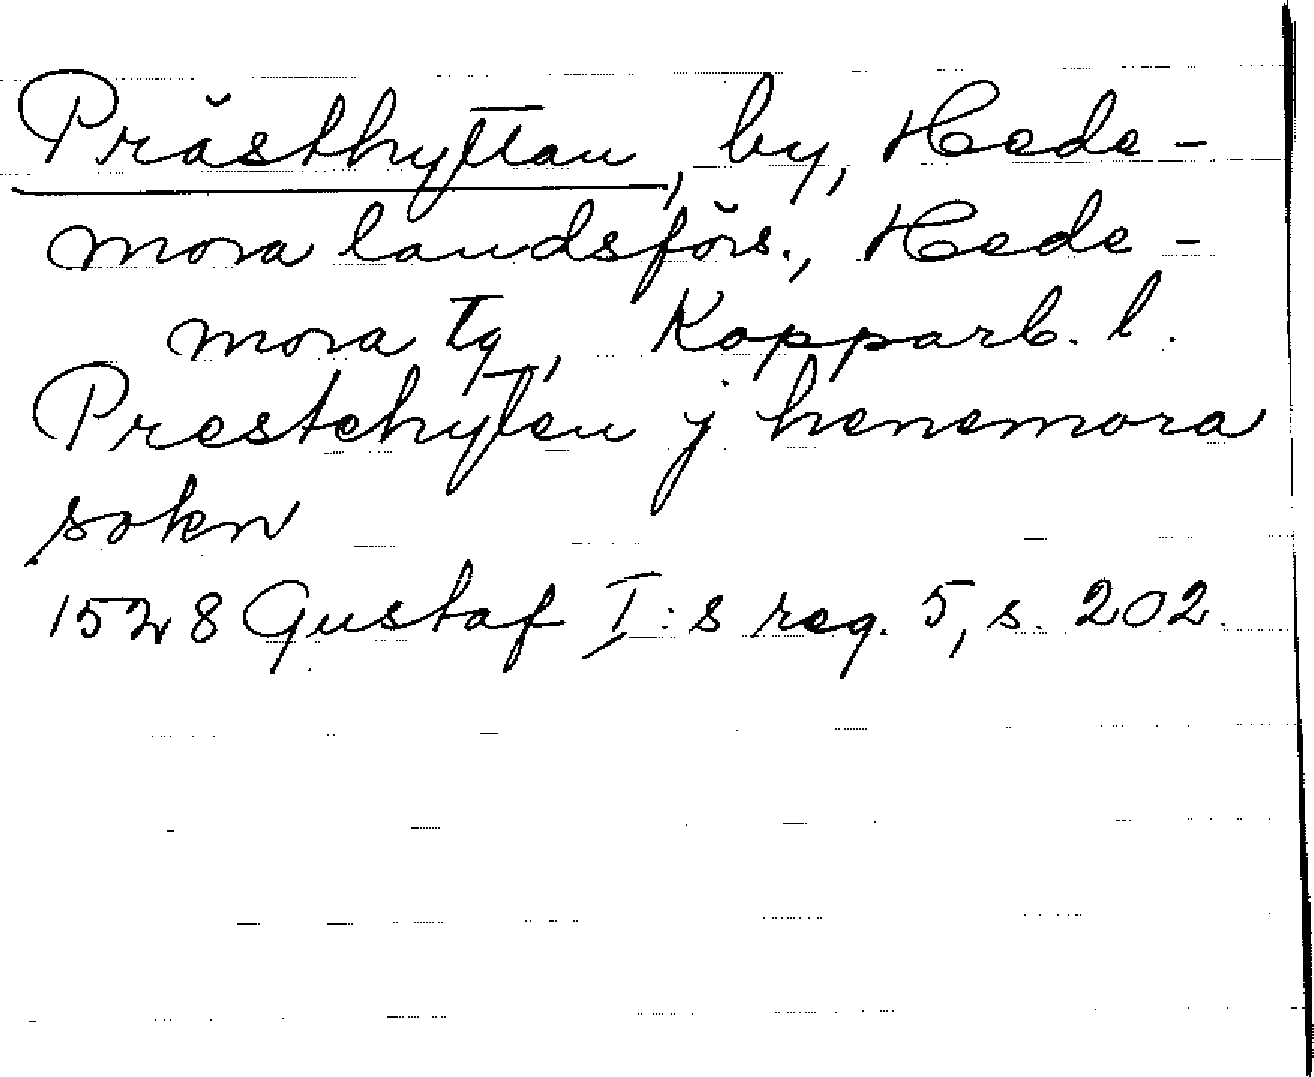 Prästhyttan, by, Hede-
mora landsförs., Hede-
mora tg, Kopparb. l.
Prestehyten j henemora
sokn
1528 Gustaf I:s reg. 5, s. 202.